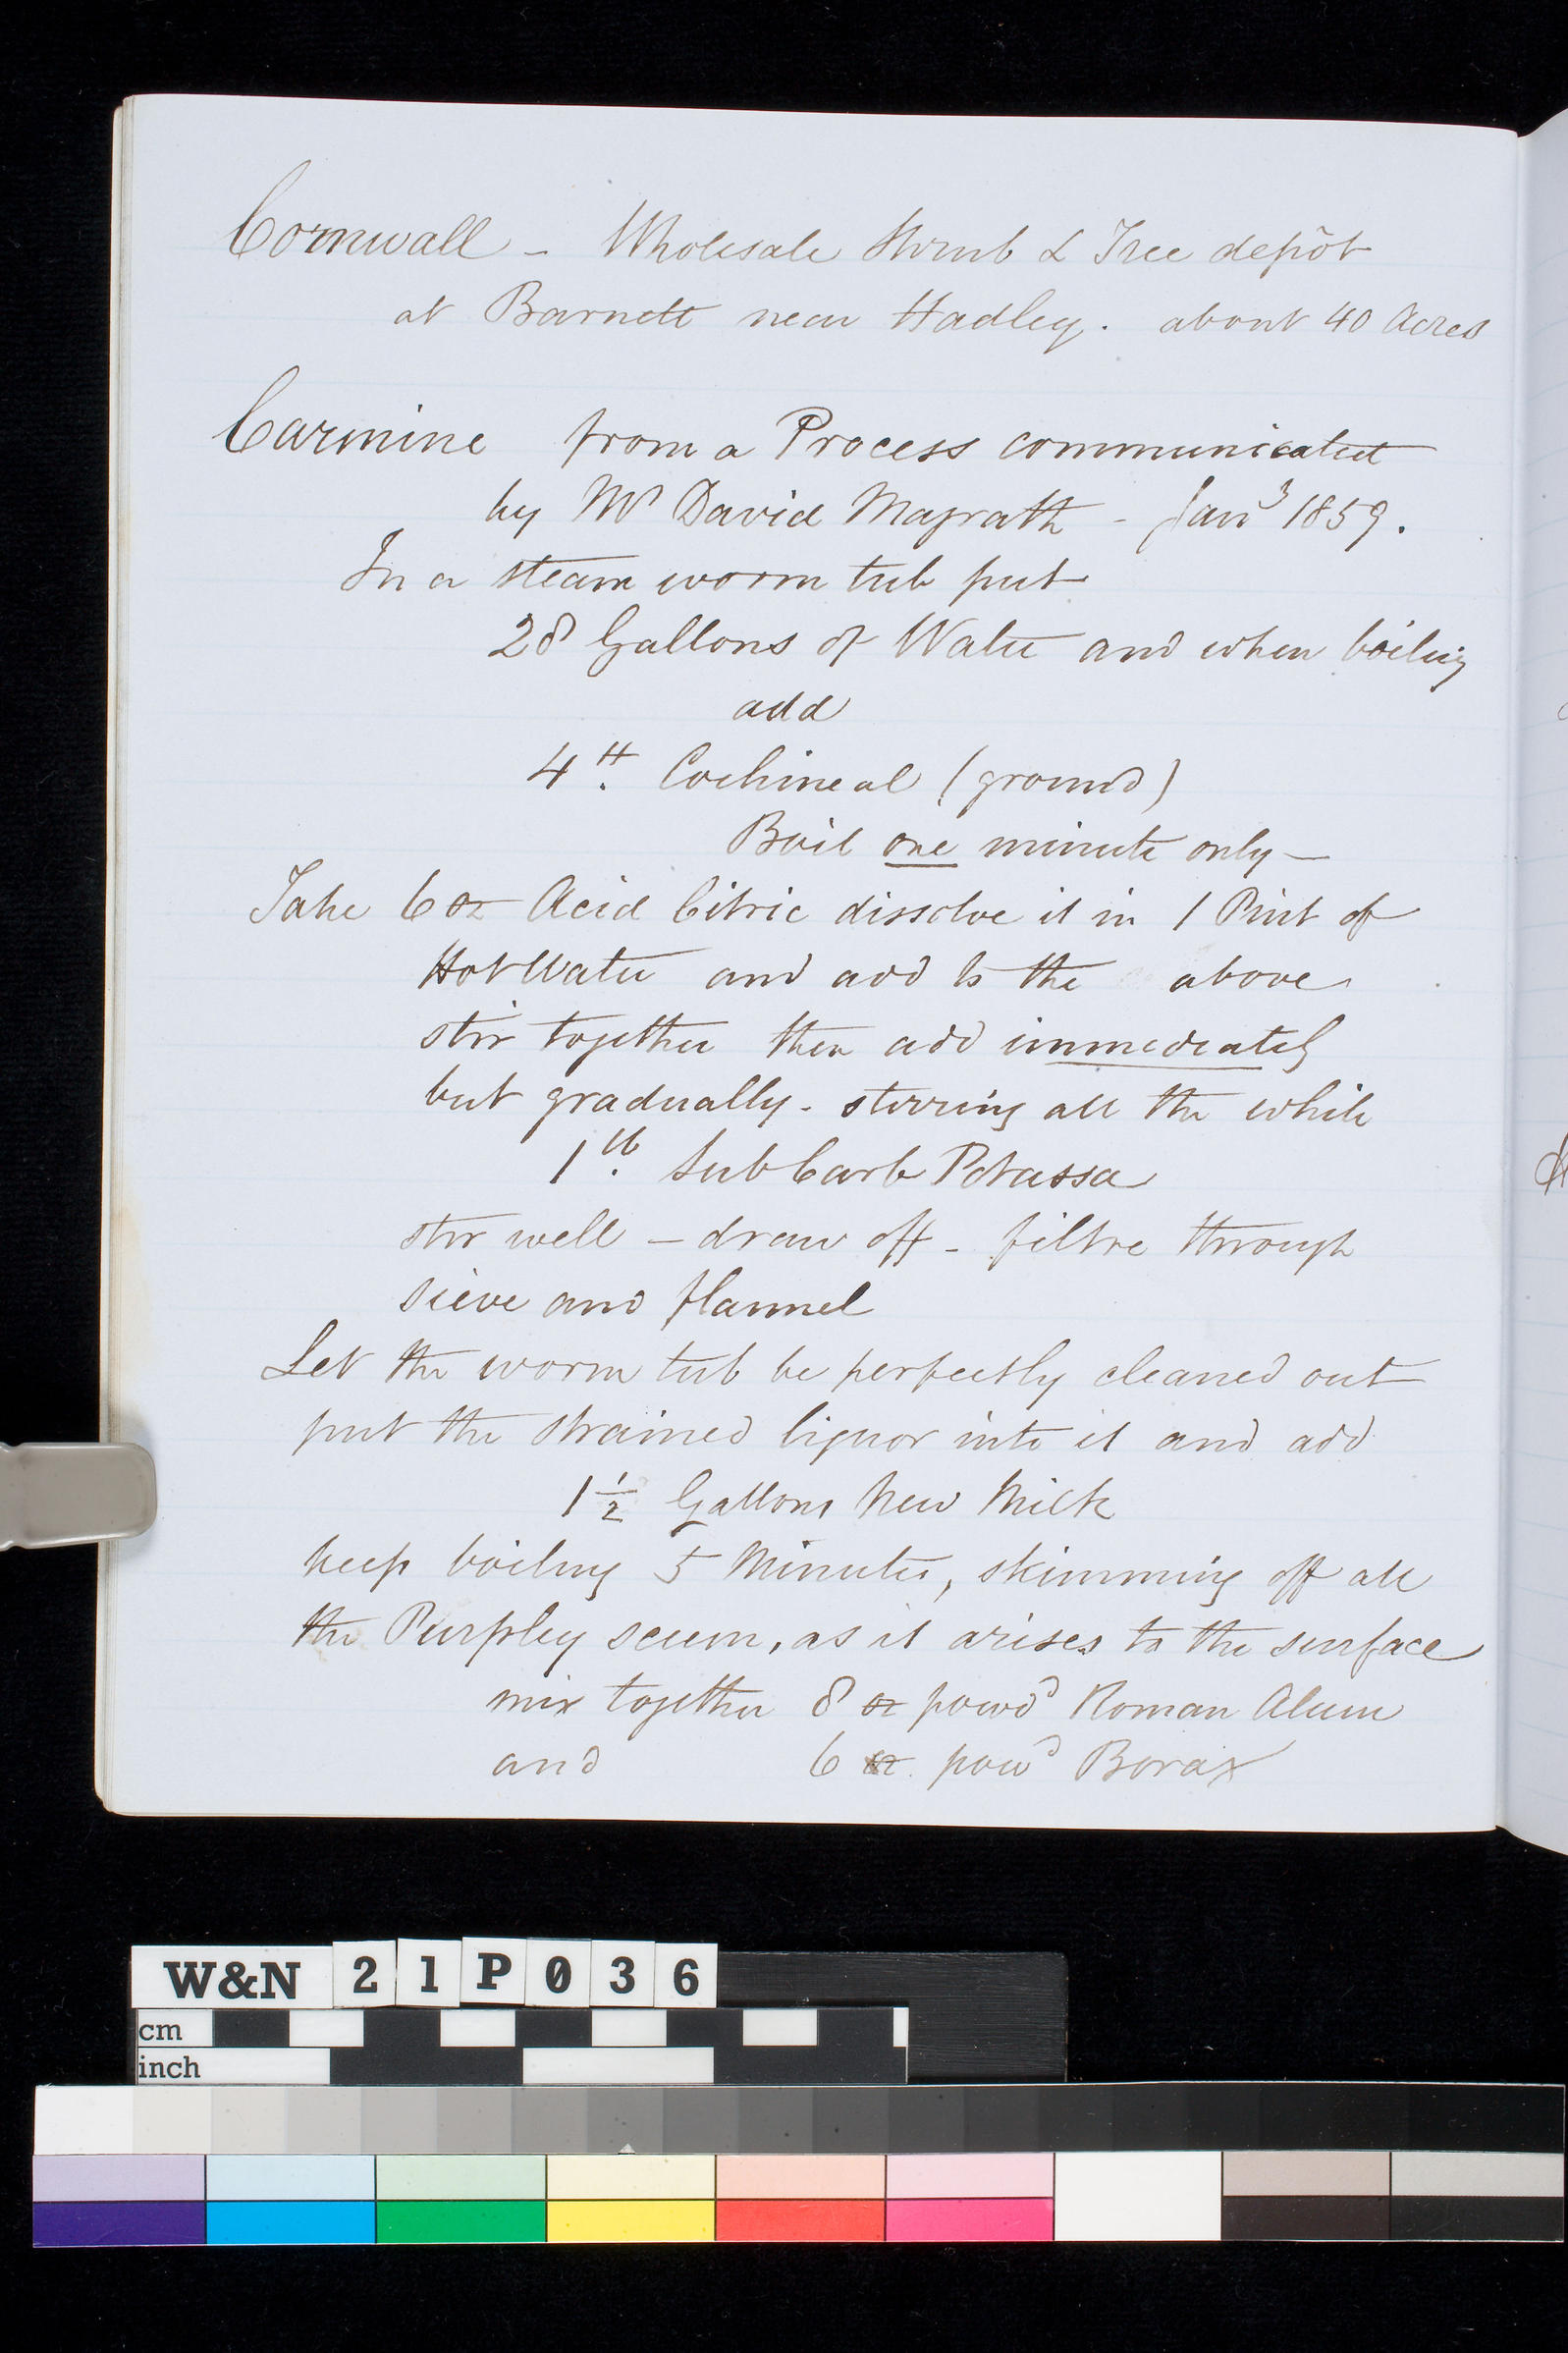 Cornwall - Wholesale Shrub & Tree depôt
at Barnett near Hadley. about 40 Acres
Carmine from a Process communicated
by Mr David Magrath - Jany 1859.
In a steam worm tub put
28 Gallons of Water and when boiling
add
4 lb. Cochineal (ground)
Boil one minute only —
Take 6 oz Acid Citric dissolve it in 1 Pint of
Hot Water and add to the above
stir together then add immediately
but gradually - stirring all the while
1 lb. Sub Carb Potassa
stir well — draw off - filtre through
sieve and flannel
Let the worm tub be perfectly cleaned out
put the strained liquor into it and add
1 1/2 Gallons New Milk
keep boiling 5 Minutes, skimming off all
the Purpley scum, as it arises to the surface
mix together 8 oz powdd Roman Alum
and 6 oz. powd Borax
W&N 21P036
cm
inch